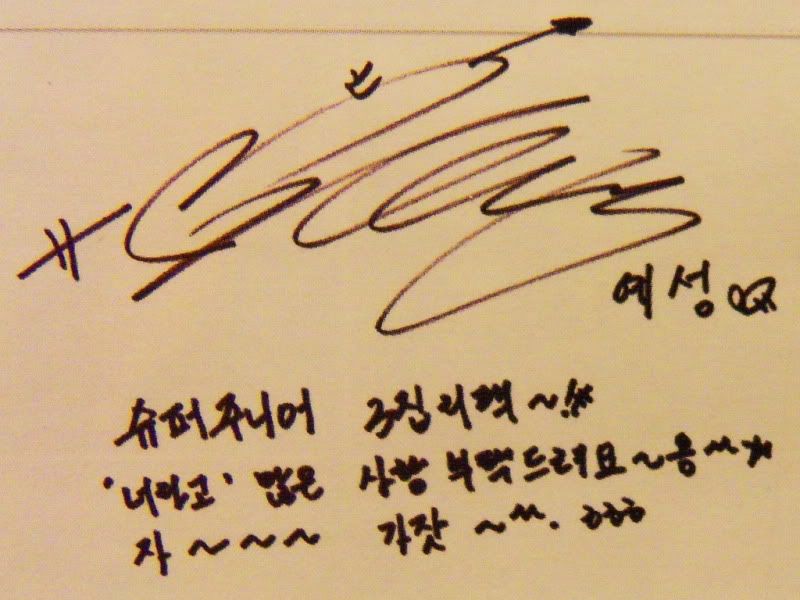 예성
슈퍼주니어 3집 리팩~!*
'너라고' 많은 사랑 부탁드려요~용^^가
자~~~ 가잣 ~^^. ㅎㅎㅎ